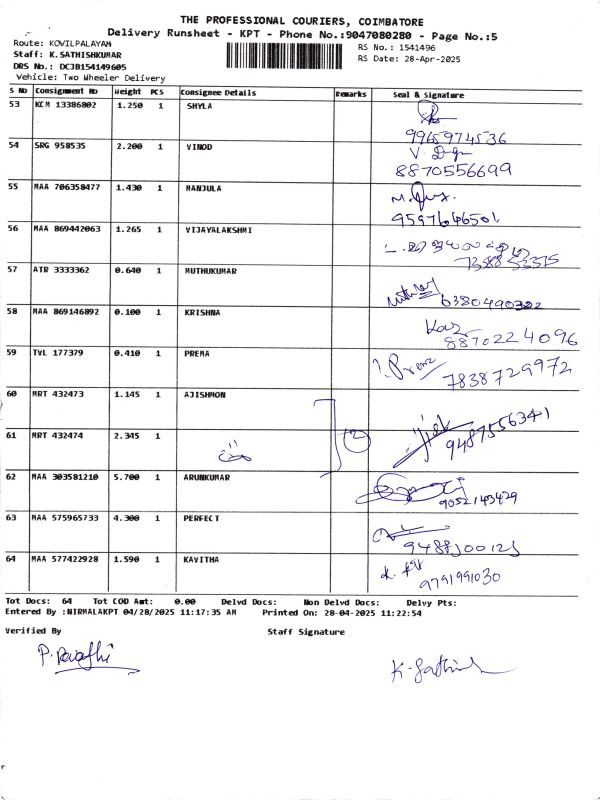 THE PROFESSIONAL COURIERS, COIMBATORE
Delivery Runsheet - KPT - Phone No.:9047080280 - Page No.:5
Route: KOVILPALAYAM
Staff: K.SATHISHKUMAR
DRS No.: DCJB154149605
Vehicle: Two Wheeler Delivery
RS No.: 1541496
RS Date: 28-Apr-2025
S No Consignment No Weight PCS Consignee Details Remarks Seal & Signature
53 KCM 13386802 1.250 1 SHYLA
9965974536
54 SRG 958535 2.200 1 VINOD
8870556699
55 MAA 706358477 1.430 1 MANJULA
9597646501
56 MAA 869442063 1.265 1 VIJAYALAKSHMI
57 ATR 3333362 0.640 1 MUTHUKUMAR
6380490322
58 MAA 869146892 0.100 1 KRISHNA
8870224096
59 TVL 177379 0.410 1 PREMA
Prema 7838729972
60 MRT 432473 1.145 1 AJISHMON
2
9487556341
61 MRT 432474 2.345 1
62 MAA 303581210 5.700 1 ARUNKUMAR
9052143429
63 MAA 575965733 4.300 1 PERFECT
64 MAA 577422928 1.590 1 KAVITHA
9791991030
Tot Docs: 64 Tot COD Amt: 0.00 Delvd Docs: Non Delvd Docs: Delvy Pts:
Entered By :NIRMALAKPT 04/28/2025 11:17:35 AM Printed On: 28-04-2025 11:22:54
Verified By Staff Signature
P. Revathi
K. Sathish